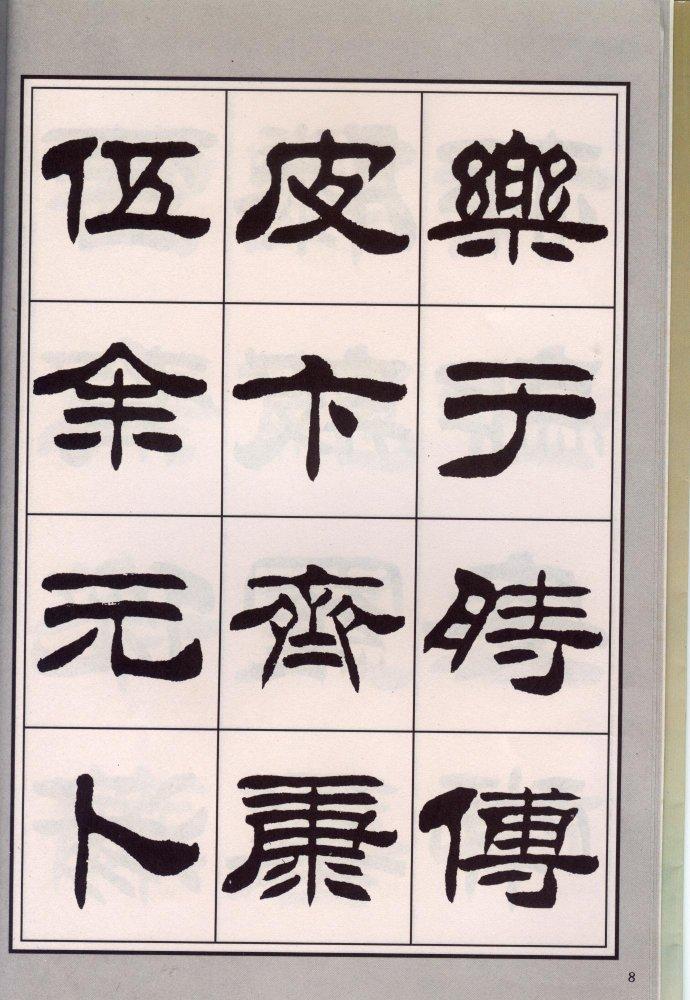 樂于時傅
皮卞齊康
伍余元卜
8